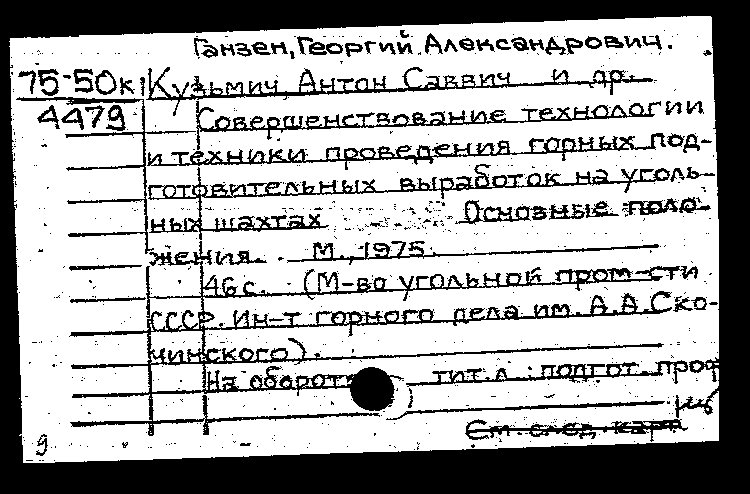 Ганзен, Георгий Александрович.
75-50к Кузьмич, Антон Саввич и др.
4479 Совершенствование технологии
и техники проведения горных под-
готовительных выработок на уголь-
ных шахтах Основные поло-
жения. М., 1975.
46 с. (М-во угольной пром-сти
СССР. Ин-т горного дела им. А.А.Ско-
чинского).
На оборот тит.л подгот. проф
См. след. карт
9